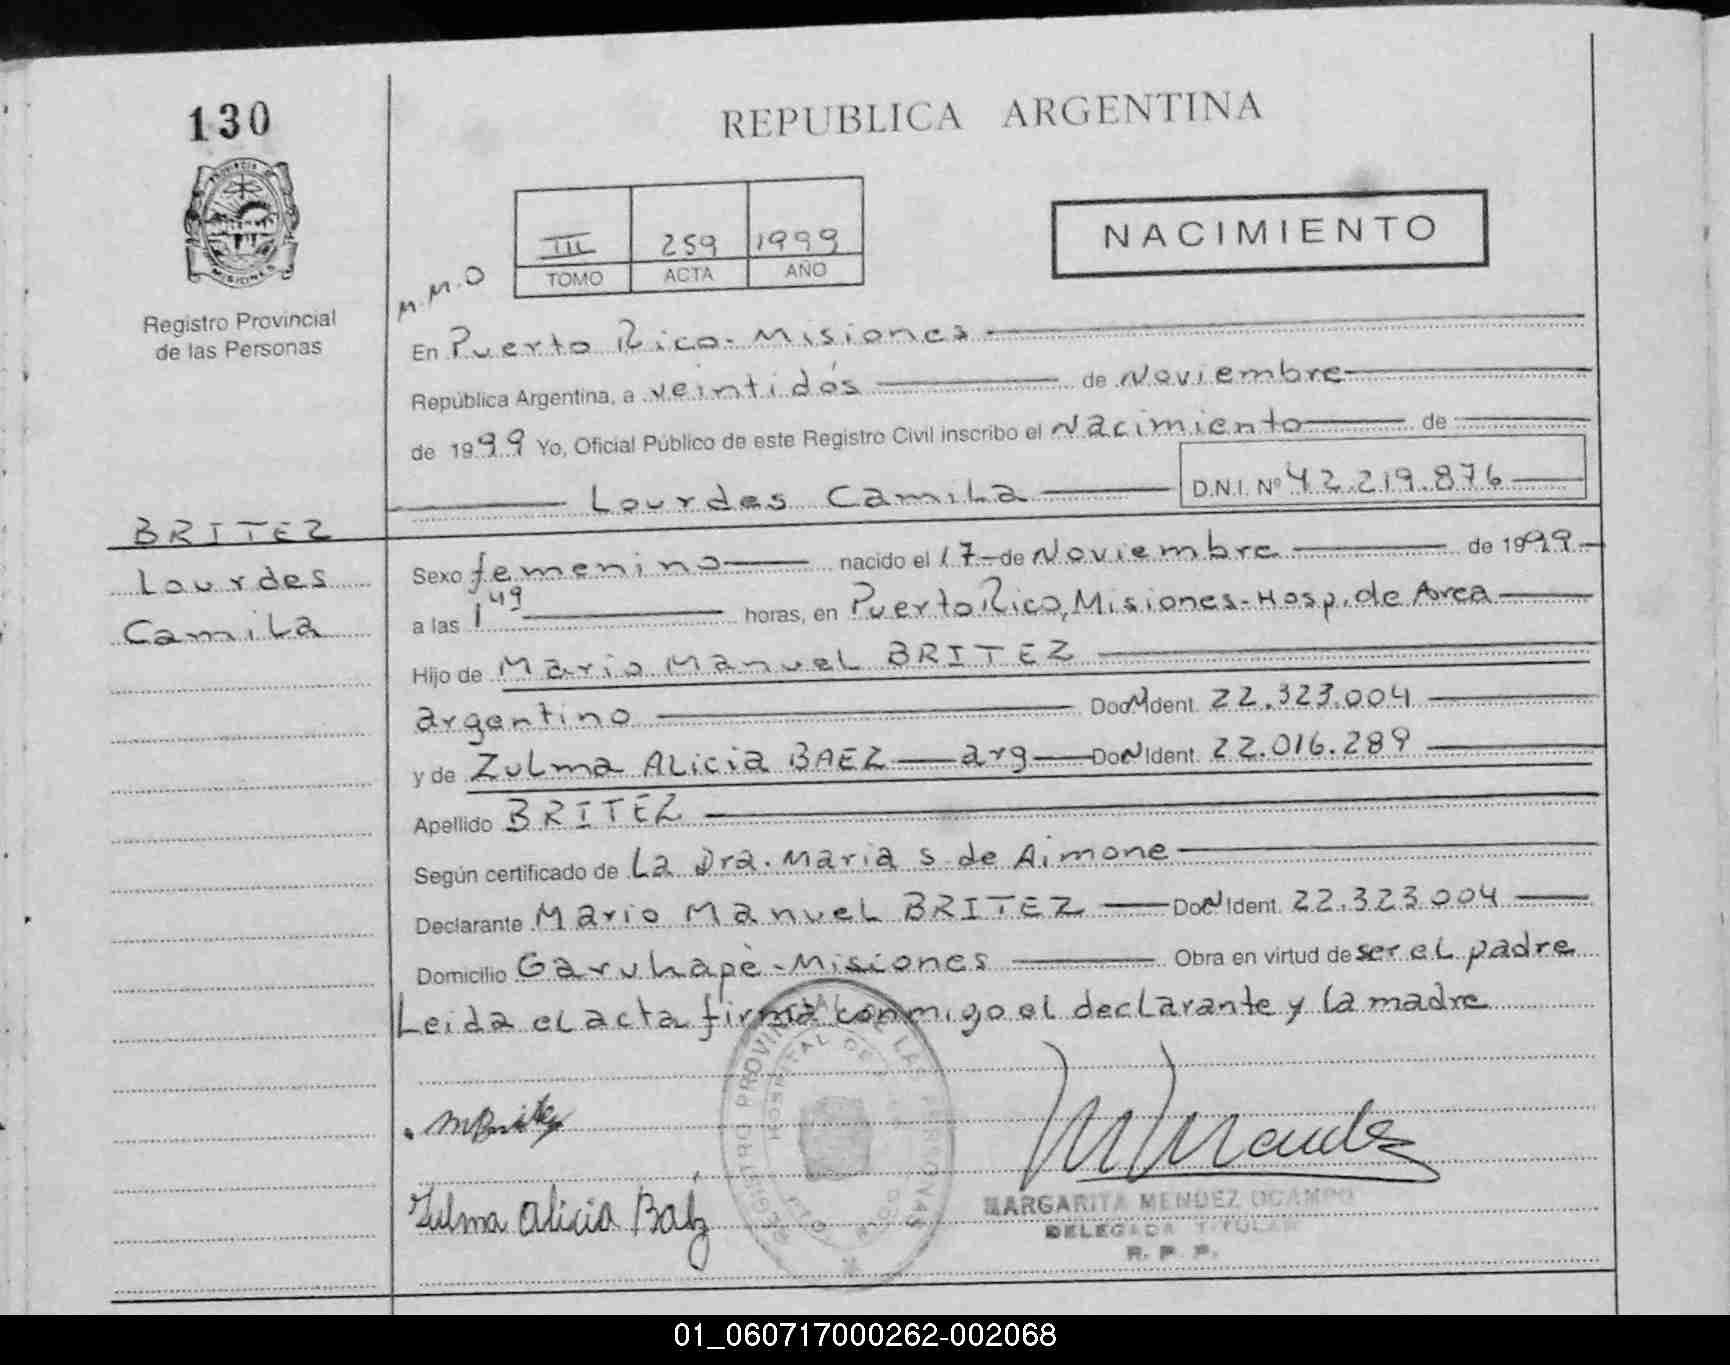 130
REPUBLICA ARGENTINA
PROVINCIA DE
MISIONES
Registro Provincial
de las Personas
III 259 1999
TOMO ACTA AÑO
NACIMIENTO
M.M.O
En Puerto Rico - Misiones
República Argentina, a veintidós de Noviembre
de 1999 Yo, Oficial Público de este Registro Civil inscribo el Nacimiento de
Lourdes Camila D.N.I. Nº 42.219.876
BRITEZ
Lourdes
Camila
Sexo femenino nacido el 17 de Noviembre de 1999
a las 1 49 horas, en Puerto Rico, Misiones - Hosp. de Area
Hijo de Mario Manuel BRITEZ
argentino Doc N Ident. 22.323.004
y de Zulma Alicia BAEZ arg Doc N Ident. 22.016.289
Apellido BRITEZ
Según certificado de La Dra. Maria S. de Aimone
Declarante Mario Manuel BRITEZ Doc N Ident. 22.323.004
Domicilio Garuhapè - Misiones Obra en virtud de ser el padre
Leida el acta firma conmigo el declarante y la madre
REGISTRO PROVINCIAL DE LAS PERSONAS
HOSPITAL DE
MBritez
Zulma Alicia Baez
MARGARITA MENDEZ OCAMPO
DELEGADA TITULAR
R. P. P.
01_060717000262-002068